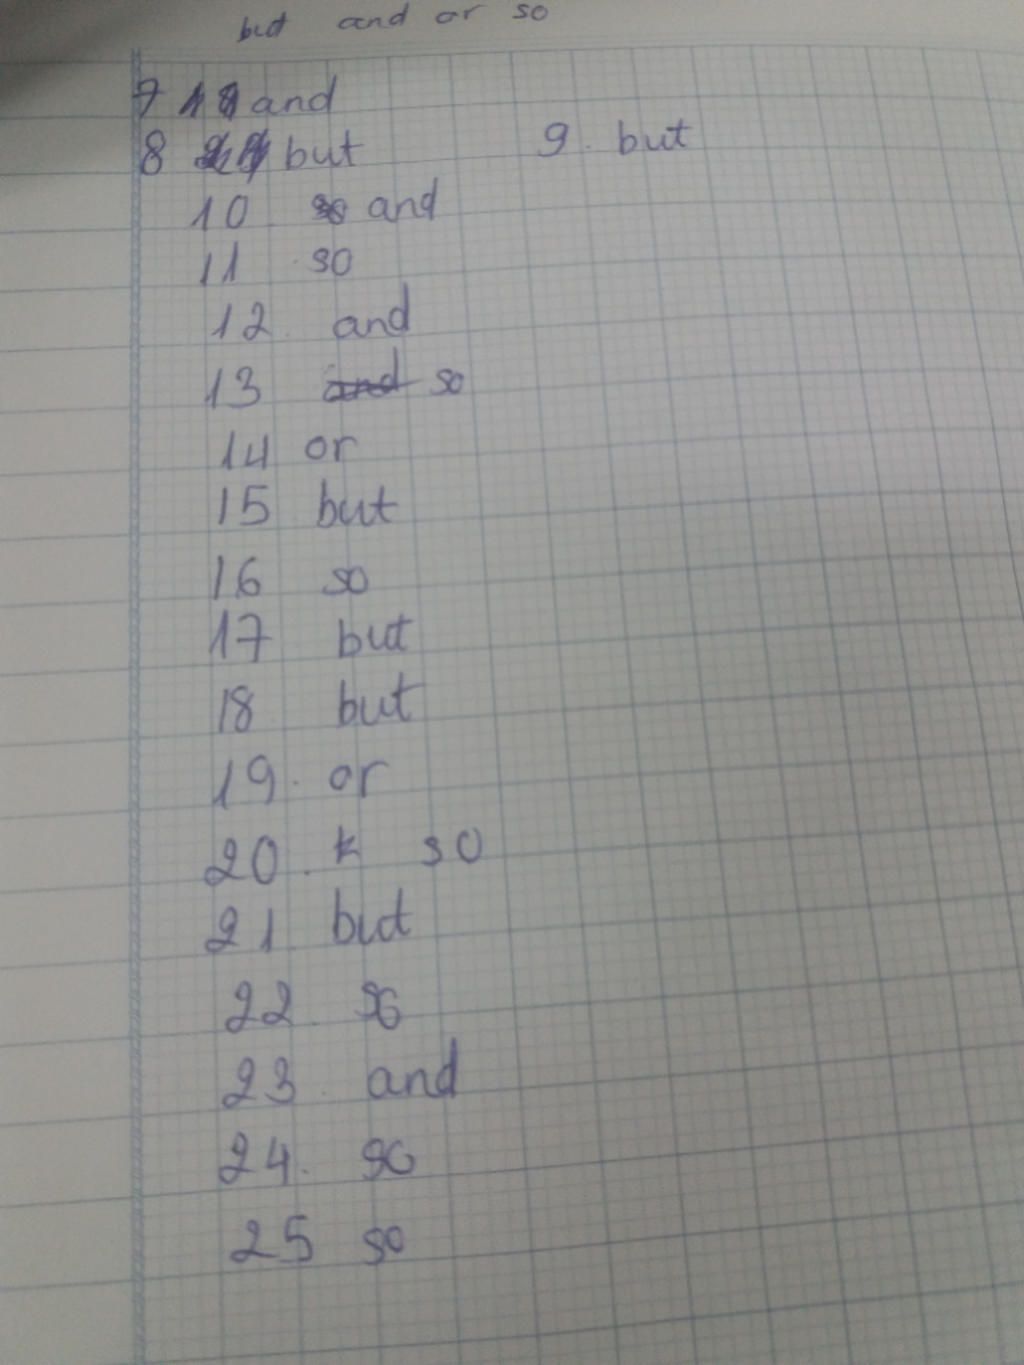 but and or so
7 and
8 but 9. but
10 and
11 so
12. and
13 and so
14 or
15 but
16 so
17 but
18 but
19. or
20. k so
21 but
22. so
23. and
24. so
25 so